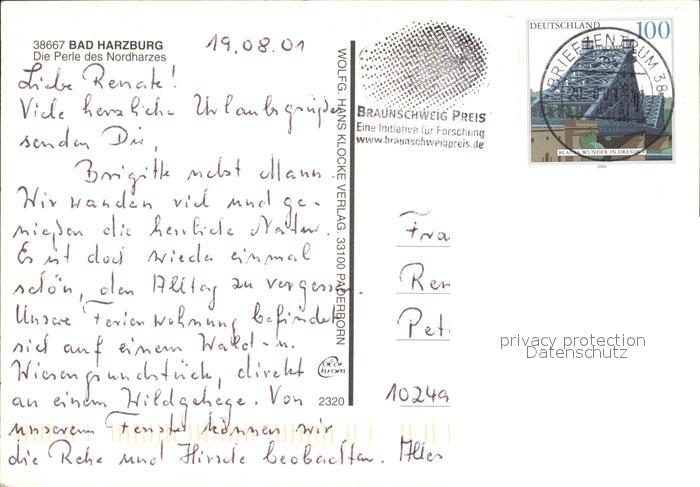 38667 BAD HARZBURG
Die Perle des Nordharzes
19.08.01
Liebe Renate!
Viele herzliche Urlaubsgrüße
senden Dir,
Brigitte nebst Mann.
Wir wandern viel und ge-
nießen die herrliche Natur.
Es ist doch wieder einmal
schön, den Alltag zu vergessen.
Unsere Ferienwohnung befindet
sich auf einem Wald- u.
Wiesengrundstück, direkt
an einem Wildgehege. Von
unserem Fenster können wir
die Rehe und Hirsche beobachten. Alles
WOLFG. HANS KLOCKE VERLAG. 33100 PADERBORN
color chrom
2320
BRAUNSCHWEIG PREIS
Eine Initiative für Forschung
www.braunschweigpreis.de
DEUTSCHLAND 100
BRIEFZENTRUM 38
BLAUES WUNDER IN DRESDEN
Fra
Ren
Pet
10249
privacy protection
Datenschutz